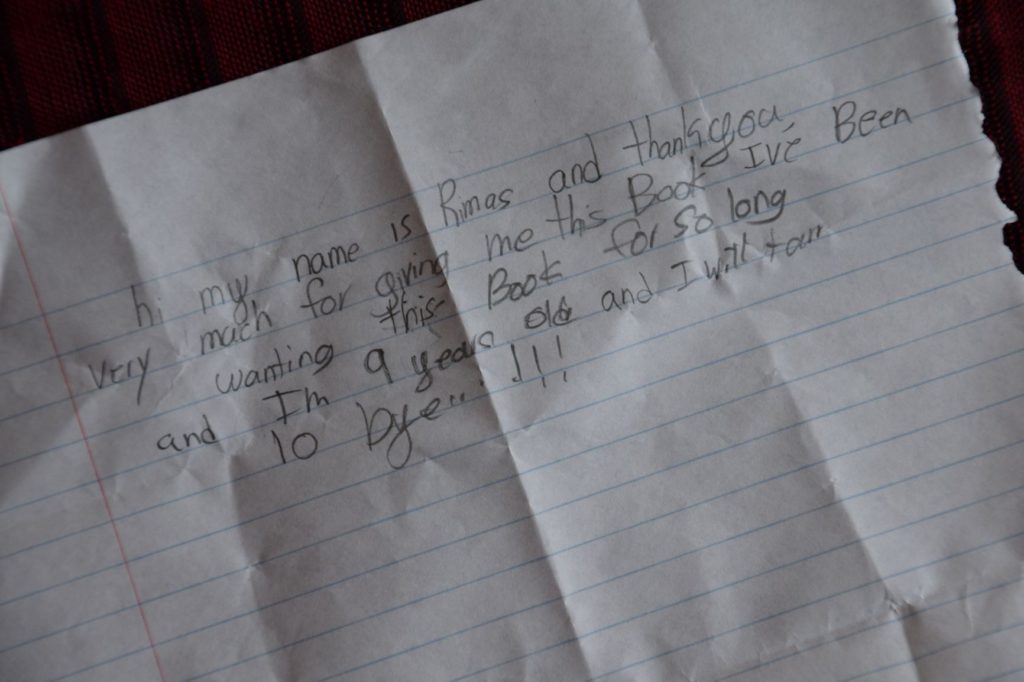 hi my name is Rimas and thankyou
very much for giving me this Book Ive Been
wanting this Book for so long
and Im 9 years old and I will turn
10 bye.... !!!